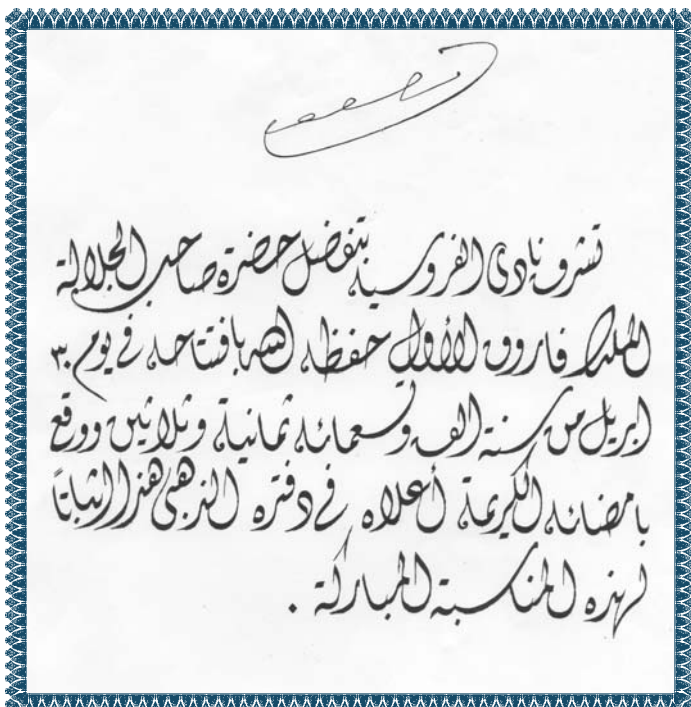 تشرف نادى الفروسية بتفضل حضرة صاحب الجلالة
الملك فاروق الأول حفظه الله بافتتاحه فى يوم ٣٠
ابريل من سنة الف وتسعمائه ثمانية وثلاثين ووقع
بامضائه الكريمة أعلاه فى دفتره الذهبى هذا إثباتاً
لهذه المناسبة المباركة .